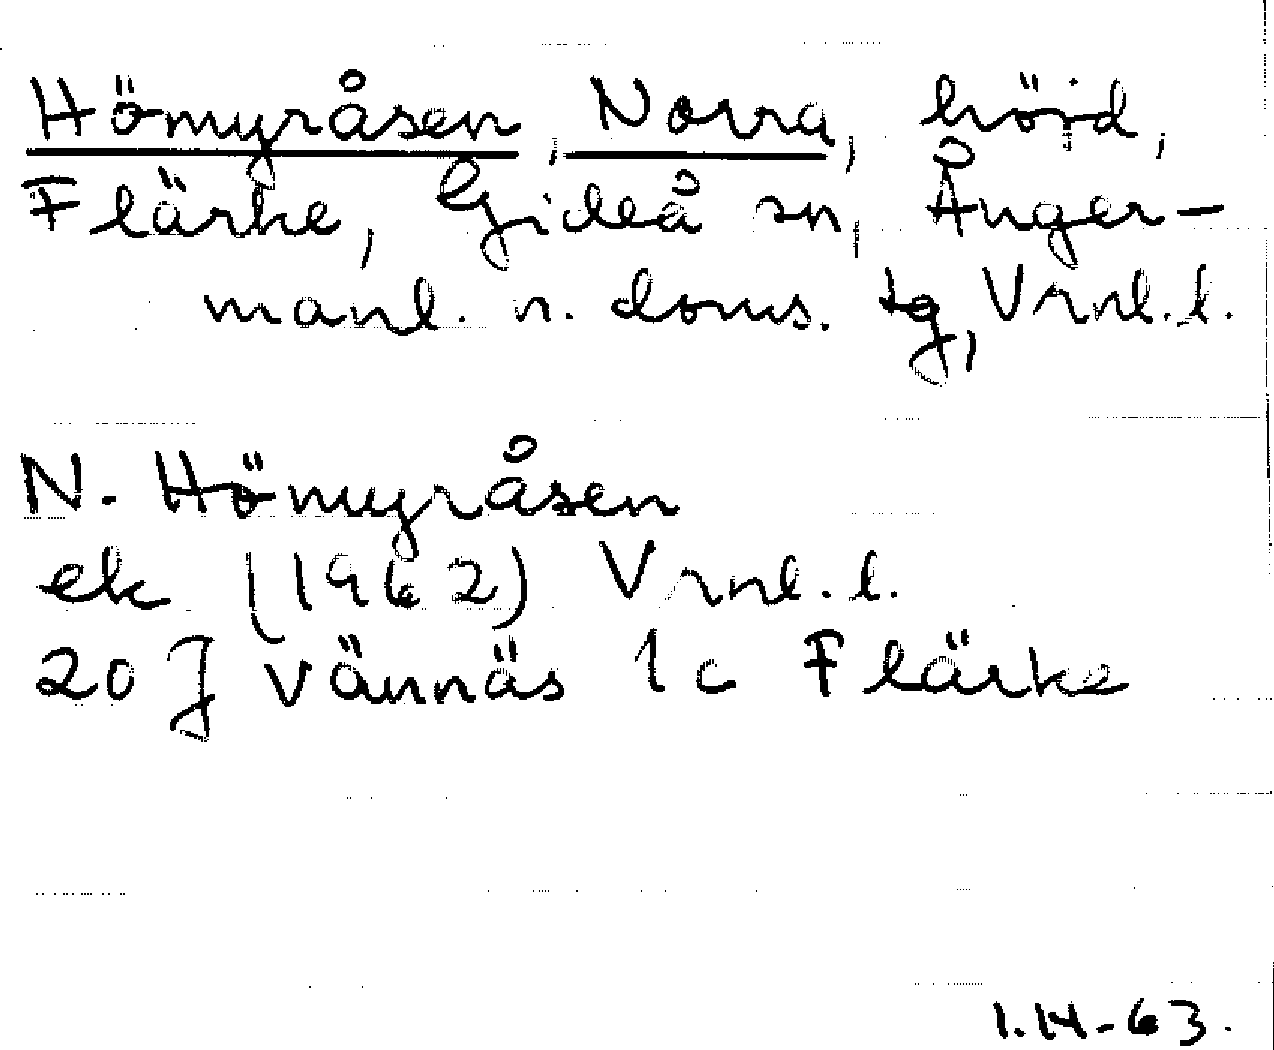 Hömyråsen, Norra, höjd,
Flärke, Gideå sn, Ånger-
manl. n. doms. tg, Vrnl.l.
N. Hömyråsen
ek (1962) Vrnl.l.
20 J Vännäs 1c Flärke
I.H-63.